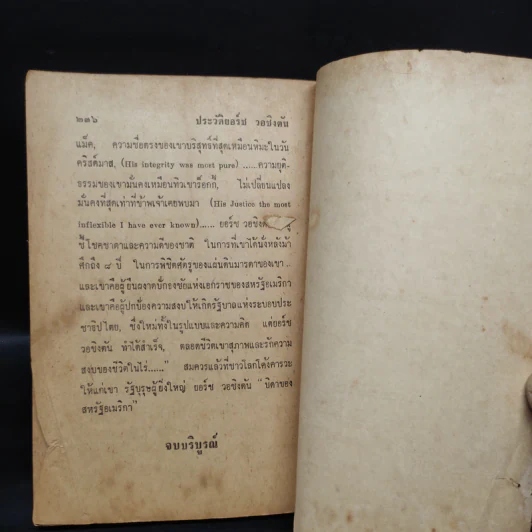 ๒๓๖ ประวัติยอร์ช วอชิงตัน
แม็ค, ความซื่อตรงของเขาบริสุทธิ์ที่สุดเหมือนหิมะในวัน
คริสต์มาส, (His integrity was most pure) ......ความยุติ-
ธรรมของเขามั่นคงเหมือนทิวเขาร็อกกี้, ไม่เปลี่ยนแปลง
มั่นคงที่สุดเท่าที่ข้าพเจ้าเคยพบมา (His Justice the most
inflexible I have ever known)...... ยอร์ช วอชิงตัน
ชี้โชคชาตาและความดีของชาติ ในการที่เขาได้นั่งหลังม้า
ศึกถึง ๘ ปี ในการพิชิตศัตรูของแผ่นดินมารดาของเขา ..
และเขาคือผู้ยืนฉงาดปักธงชัยแห่งเอกราชของสหรัฐอเมริกา
และเขาคือผู้ปกป้องความสงบให้เกิดรัฐบาลแห่งระบอบประ
ชาธิปไตย, ซึ่งใหม่ทั้งในรูปแบบและความคิด แต่ยอร์ช
วอชิงตัน ทำได้สำเร็จ, ตลอดชีวิตเขาสุภาพและรักความ
สงบของชีวิตในไร่......” สมควรแล้วที่ชาวโลกโค้งคารวะ
ให้แก่เขา รัฐบุรุษผู้ยิ่งใหญ่ ยอร์ช วอชิงตัน “บิดาของ
สหรัฐอเมริกา”
จบบริบูรณ์